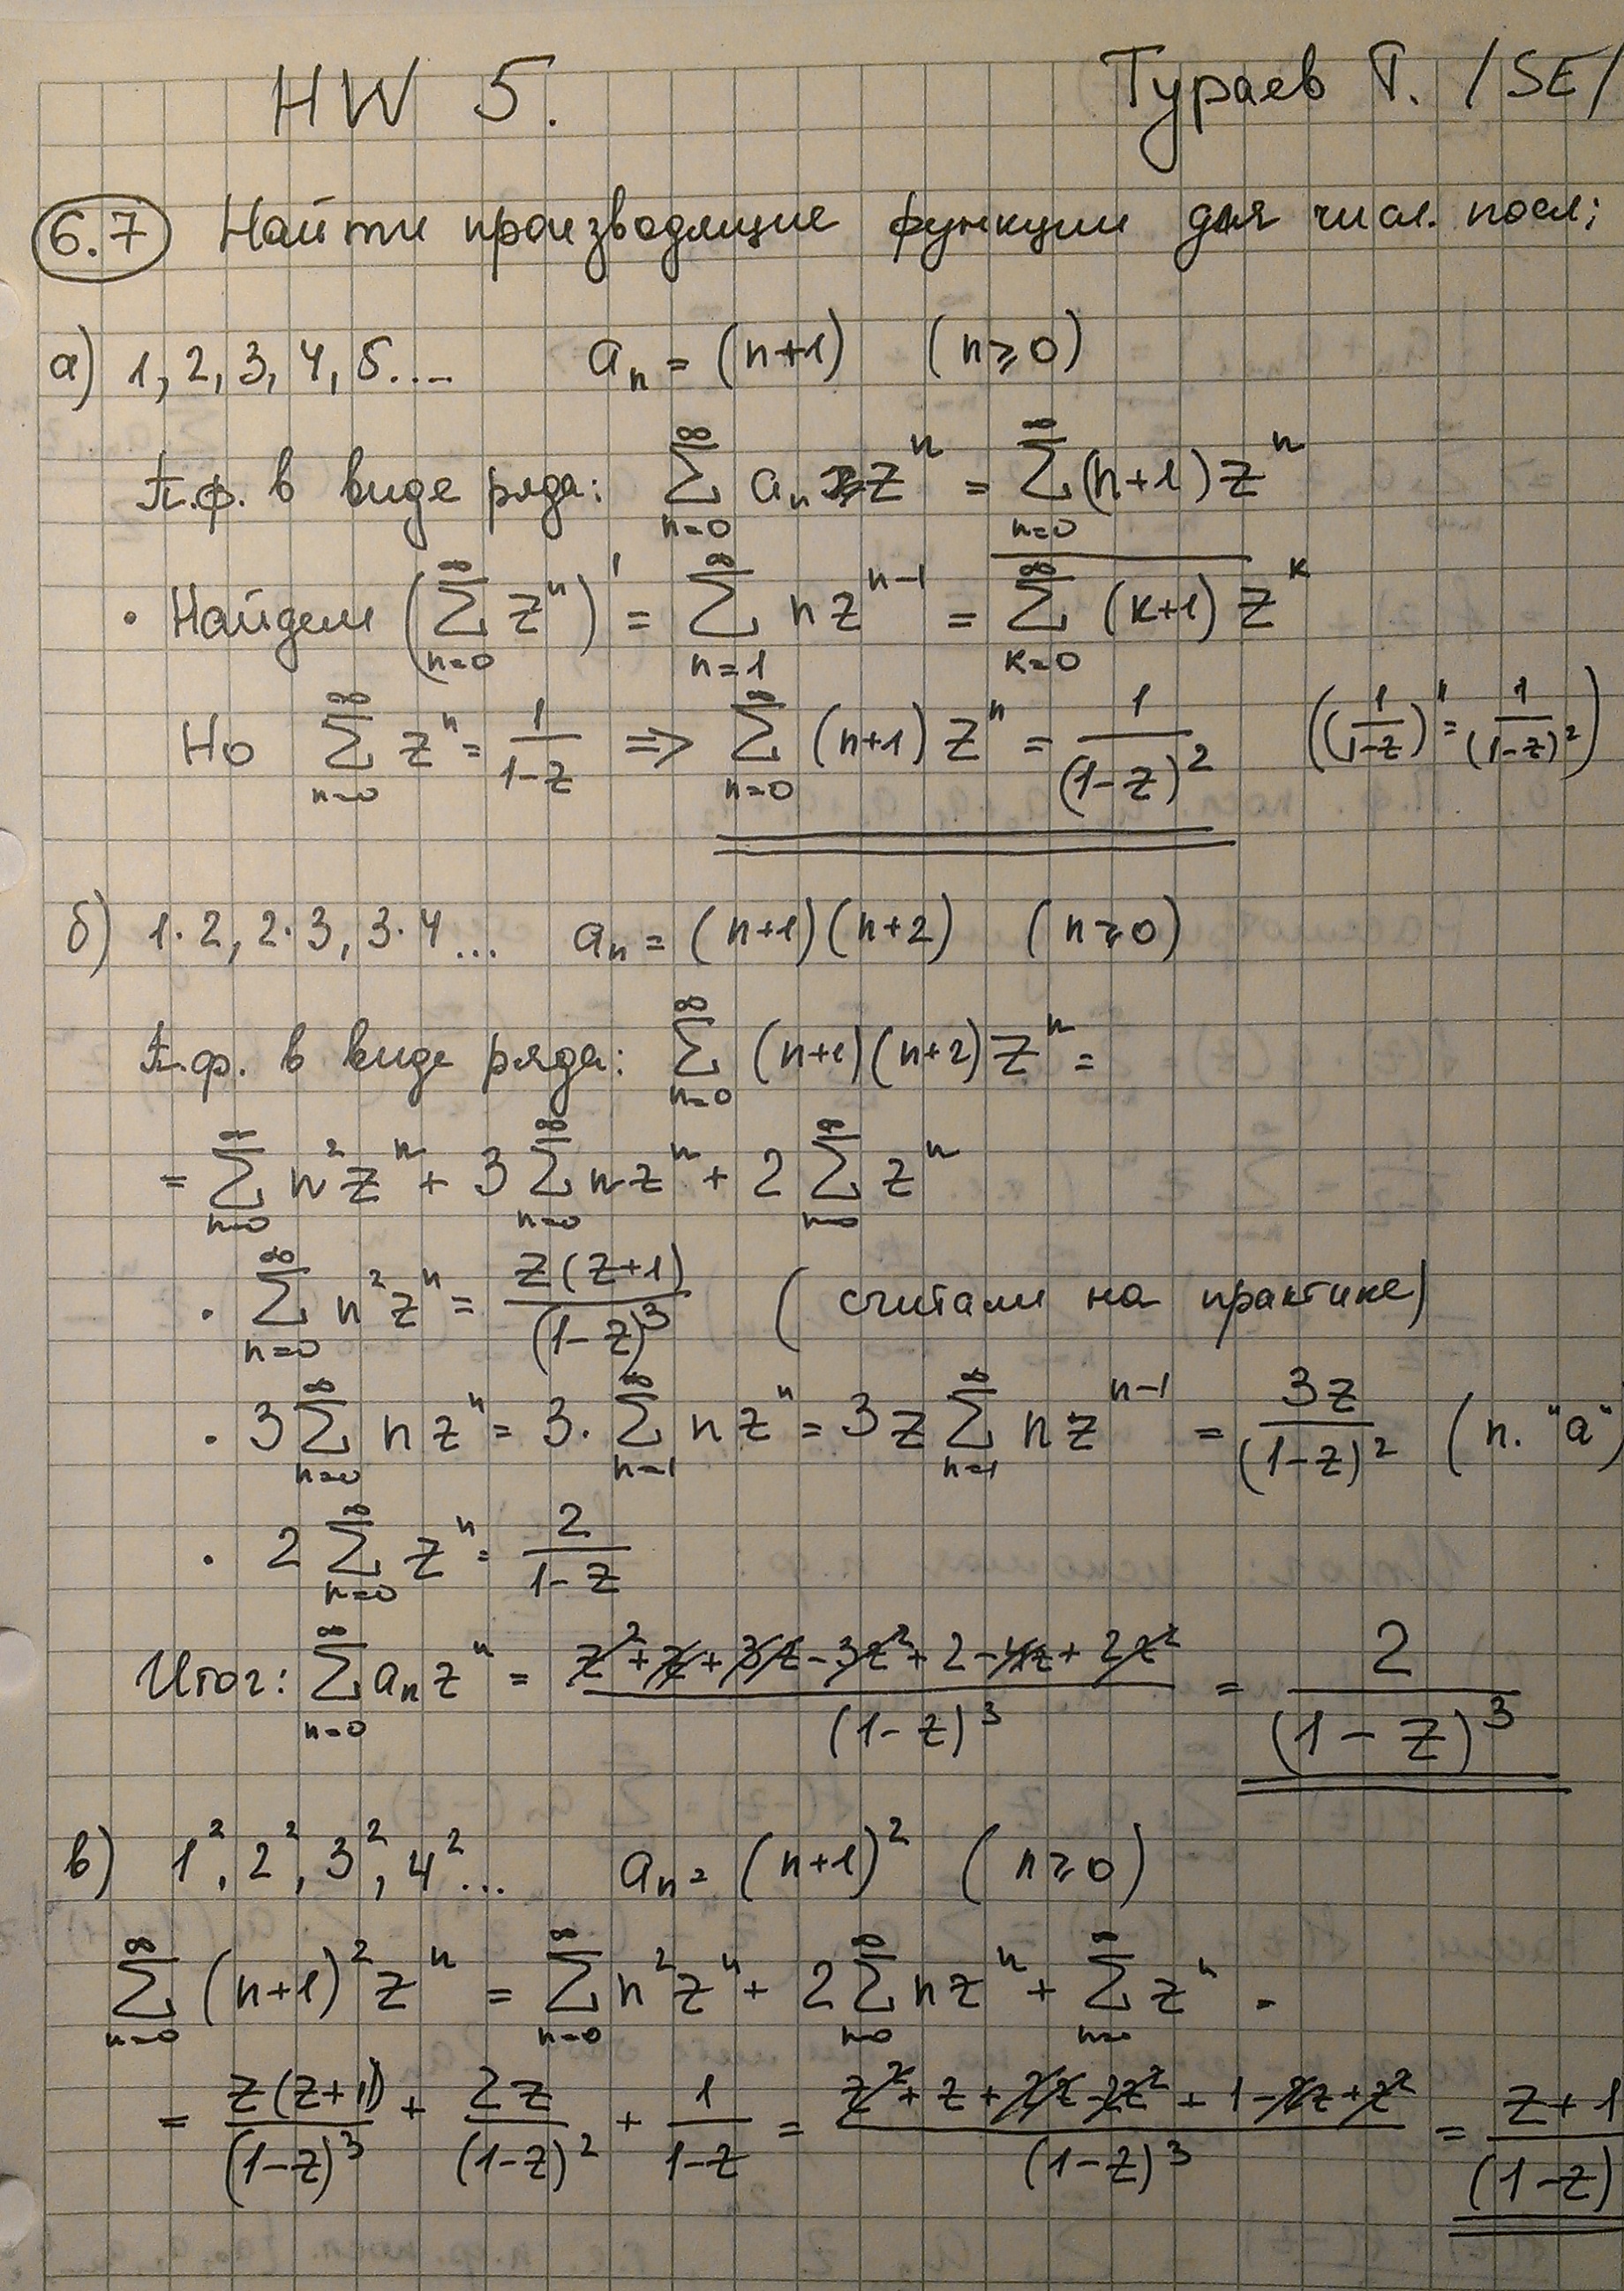 HW 5. Тураев Т. /SE/
6.7 Найти производящие функции для числ. посл:
а) 1, 2, 3, 4, 5.... aₙ = (n+1) (n≥0)
П.ф. в виде ряда: ∑_{n=0}^{∞} aₙ zⁿ = ∑_{n=0}^{∞} (n+1) zⁿ
• Найдем (∑_{n=0}^{∞} zⁿ)' = ∑_{n=1}^{∞} n z^{n-1} = ∑_{k=0}^{∞} (k+1) z^k
Но ∑_{n=0}^{∞} zⁿ = 1/(1-z) => ∑_{n=0}^{∞} (n+1) zⁿ = 1/(1-z)² ((1/(1-z))' = 1/(1-z)²)
б) 1·2, 2·3, 3·4... aₙ = (n+1)(n+2) (n≥0)
П.ф. в виде ряда: ∑_{n=0}^{∞} (n+1)(n+2) zⁿ =
= ∑_{n=0}^{∞} n² zⁿ + 3 ∑_{n=0}^{∞} n zⁿ + 2 ∑_{n=0}^{∞} zⁿ
• ∑_{n=0}^{∞} n² zⁿ = z(z+1)/(1-z)³ (считали на практике)
• 3 ∑_{n=0}^{∞} n zⁿ = 3· ∑_{n=1}^{∞} n zⁿ = 3z ∑_{n=1}^{∞} n z^{n-1} = 3z/(1-z)² (п. "а")
• 2 ∑_{n=0}^{∞} zⁿ = 2/(1-z)
Итог: ∑_{n=0}^{∞} aₙ zⁿ = (z² + z + 3z - 3z² + 2 - 4z + 2z²)/(1-z)³ = 2/(1-z)³
в) 1², 2², 3², 4²... aₙ = (n+1)² (n≥0)
∑_{n=0}^{∞} (n+1)² zⁿ = ∑_{n=0}^{∞} n² zⁿ + 2 ∑_{n=0}^{∞} n zⁿ + ∑_{n=0}^{∞} zⁿ =
= z(z+1)/(1-z)³ + 2z/(1-z)² + 1/(1-z) = (z² + z + 2z - 2z² + 1 - 2z + z²)/(1-z)³ = (z+1)/(1-z)